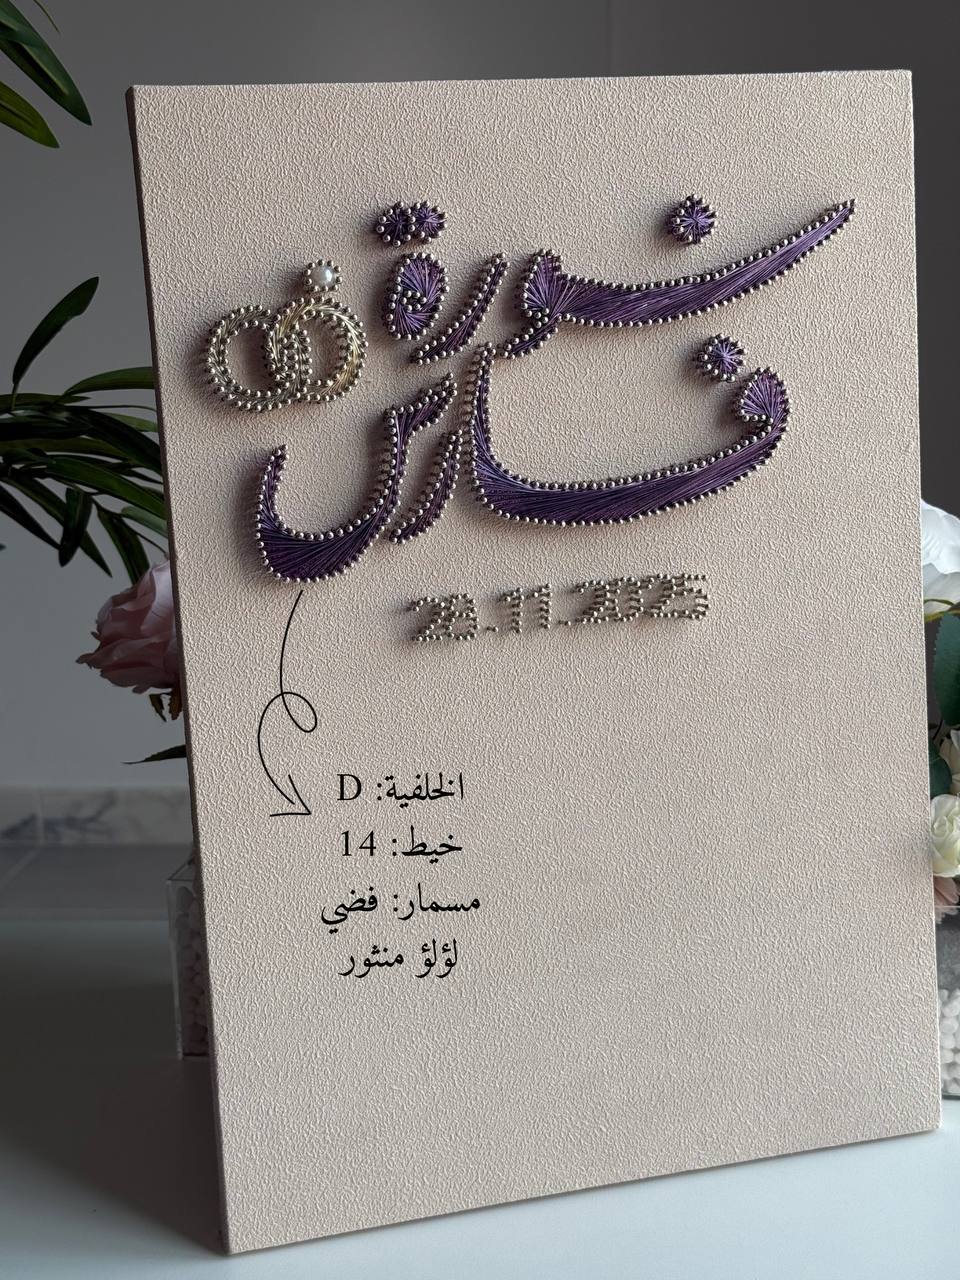 نورة
فارس
28.11.2025
الخلفية: D
خيط: 14
مسمار: فضي
لؤلؤ منثور